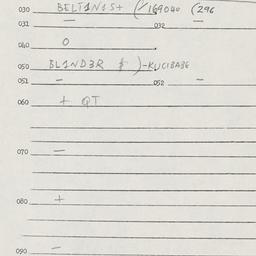 030 BELT1N1S+ (/169040 (296
031 — 032 —
040 O
050 BL1ND3R $ )-KUCIBABE
051 — 052 —
060 + QT
070 —
080 +
090 —